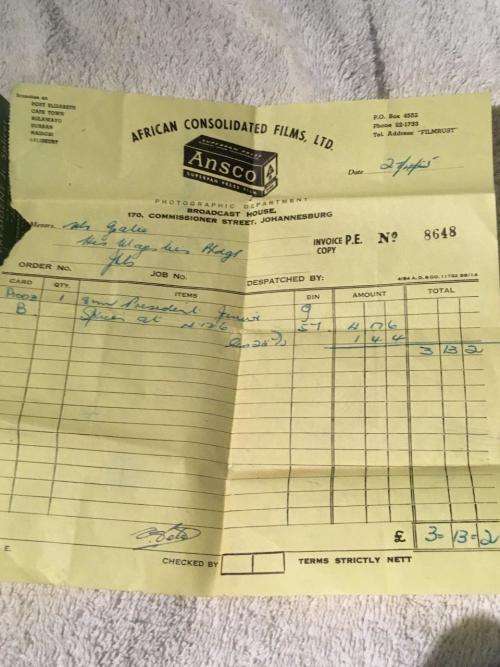 Branches at:
PORT ELIZABETH
CAPE TOWN
BULAWAYO
DURBAN
NAIROBI
SALISBURY
AFRICAN CONSOLIDATED FILMS, LTD.
P.O. Box 4552
Phone 22-1733
Tel. Address "FILMRUST"
SUPERPAN PRESS
Ansco
SUPERPAN PRESS FILM
Date
PHOTOGRAPHIC DEPARTMENT
BROADCAST HOUSE,
170, COMMISSIONER STREET, JOHANNESBURG
Messrs.
His Majesties Bldgs
Jhb
INVOICE P.E. No 8648
COPY
ORDER No. JOB No. DESPATCHED BY:
CARD QTY. ITEMS BIN AMOUNT TOTAL
1 8mm President 9
B at 57 4 17 6
Less 25% 1 4 4
3 13 2
£ 3-13-2
E. CHECKED BY TERMS STRICTLY NETT